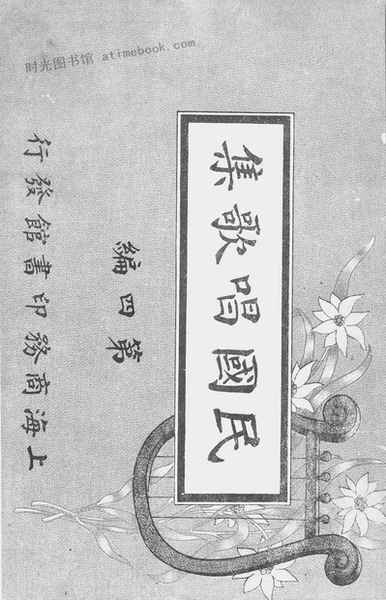 时光图书馆 atimebook.com
民國唱歌集
第四編
上海商務印書館發行